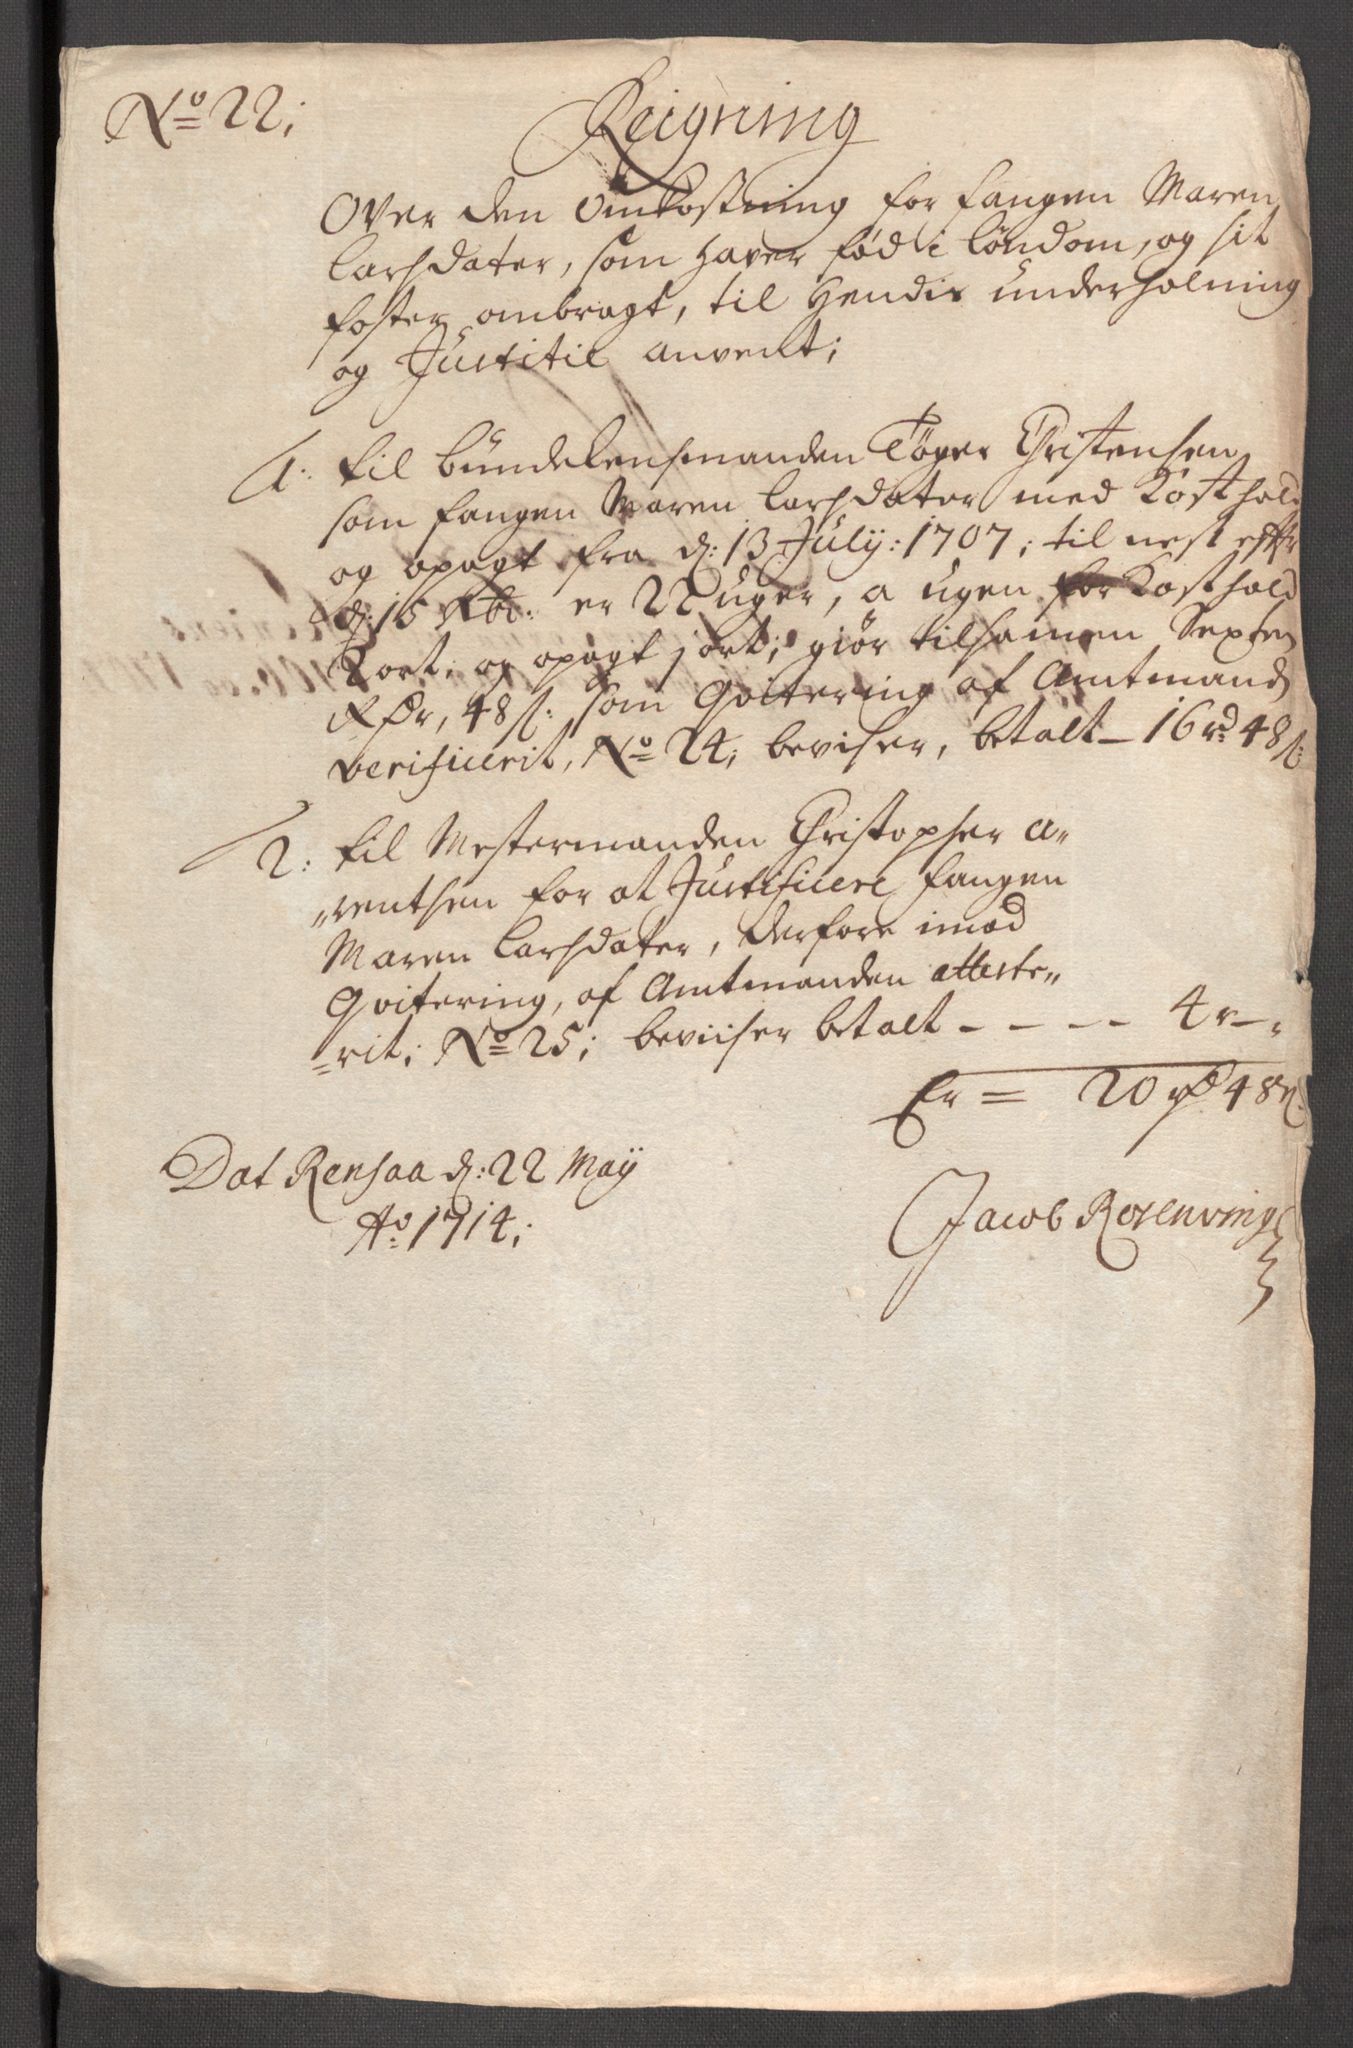 No 22;
Reigning
Over den Omkostning for fangen Maren
Larsdater, som haver fød i løndom, og sit
foster ombragt, til Hendis underholning
og Justitie anvent;
1: til bundelensmanden Tøger Christensen
som fangen Maren Larsdater med Kosthold
og opagt fra d: 13 July: 1707; til nest efftr
d: 15 Xbr: er 22 uger, a ugen for Kosthold
og opagt 3 ort; giør tilsamen Sexten
Rdr, 48 s: som Qvitering af Amtmand
verificerit, No 24; beviser, betalt - 16 rd 48 s:
2: til Mestermanden Christopher A-
rentsen for at Justificere fangen
Maren Larsdater, derfore imod
Qvitering, af Amtmanden atteste-
rit; No 25; beviiser betalt - - - - 4 r - -
Er = 20 rd 48 s.
Dat Rensaa d: 22 May
Ao 1714;
Jacob Rosenving